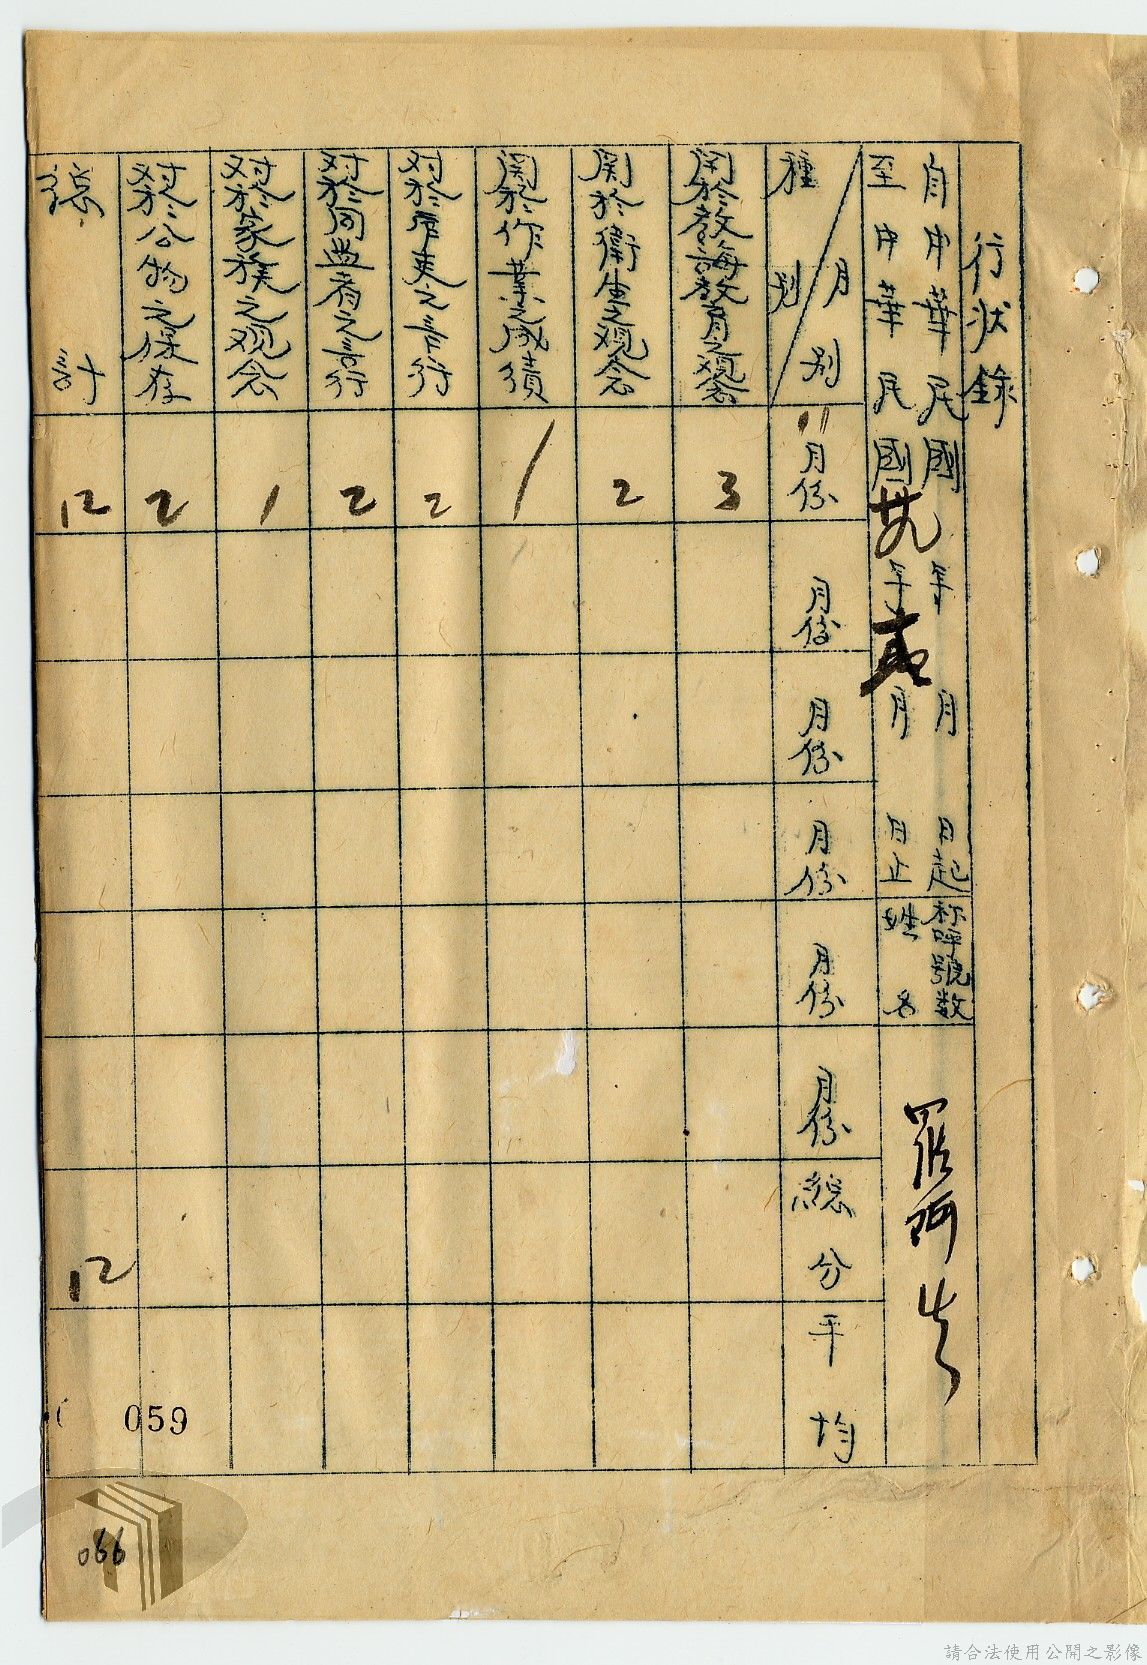 行狀錄
自中華民國 年 月 日起
至中華民國卅九年 月 日止
称呼號数
姓名
羅阿
月別
種別
11月份
月份
月份
月份
月份
月份
總分
平均
関於教誨教育之观念
3
関於衛生之观念
2
関於作業之成績
1
对於官吏之言行
2
对於同囚者之言行
2
对於家族之观念
1
对於公物之保存
2
總計
12
12
059
066
請合法使用公開之影像